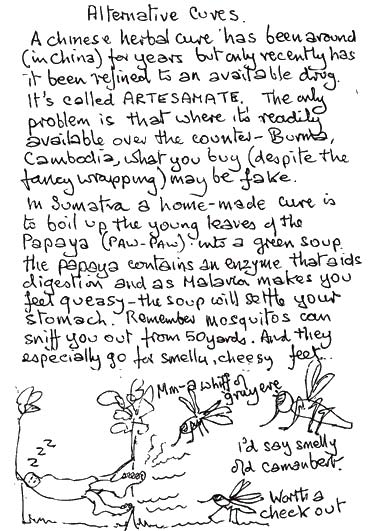 Alternative Cures.
A chinese herbal cure has been around
(in china) for years but only recently has
it been refined to an available drug.
It's called ARTESAMATE. The only
problem is that where its readily
available over the counter - Burma,
Cambodia, what you buy (despite the
fancy wrapping) may be fake.
In Sumatra a home-made cure is
to boil up the young leaves of the
Papaya (PAW-PAW) into a green soup.
the papaya contains an enzyme that aids
digestion and as Malaria makes you
feel queasy - the soup will settle your
stomach. Remember Mosquitos can
sniff you out from 50yards. And they
especially go for smelly, cheesy feet...
Mm-a whiff of
gruyere
z z z
i'd say smelly
old camanbert.
Worth a
check out